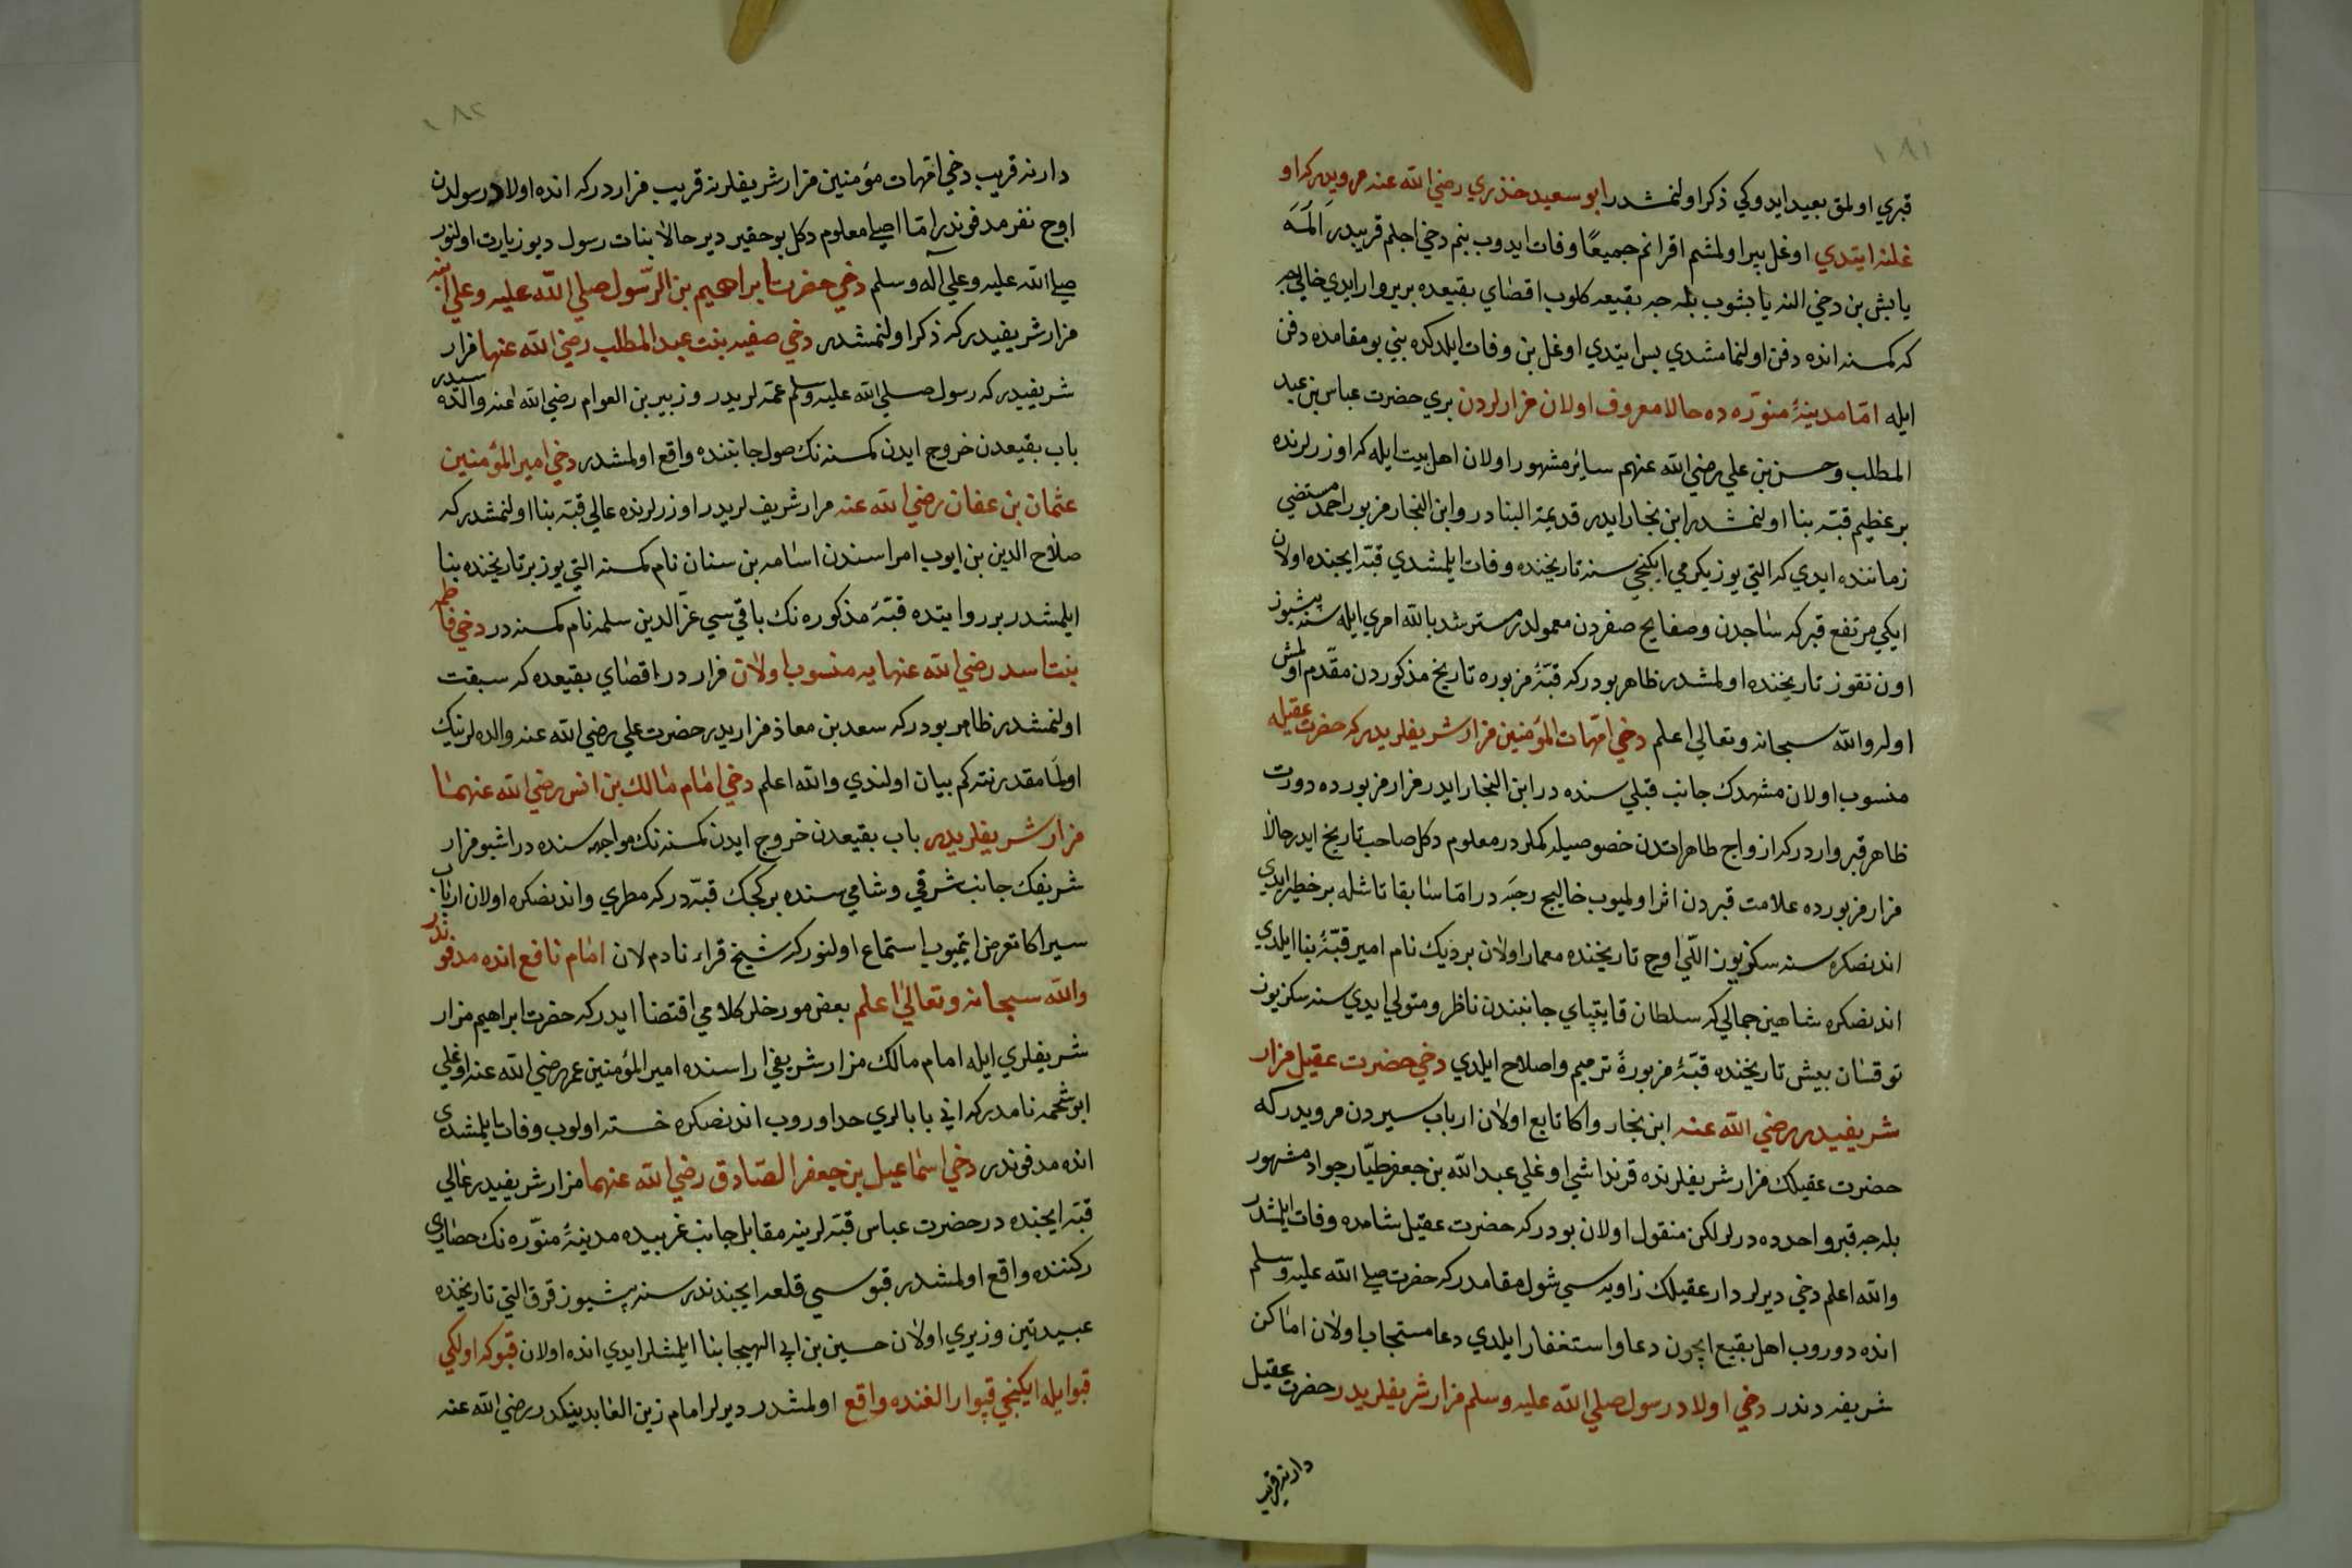 ١٨١
قبري اولمق بعيد ايدوكي ذكر اولنمشدر ابو سعيد خذري رضي الله عنه مرويدركه او
غلنه ايتدي اوغل پير اولمشم اقرانم جميعًا وفات ايدوب بنم دخي اجلم قريبدر المه
يا بشوب بله جه بقيعه كلوب اقصاي بقيعده بر ير وار ايدي خالي
كه كمسنه انده دفن اولنمامشدي پس ايتدي اوغل بن وفات ايلدكده بني بو مقامده دفن
ايله امّا مدينۀ منوّره ده حالا معروف اولان مزارلردن بري حضرت عباس بن عبد
المطلب و حسن بن علي رضي الله عنهم سائر مشهور اولان اهل بيت ايله كه اوزرلرنده
بر عظيم قبّه بنا اولنمشدر ابن نجار ايدر قديمة البنادر و ابن النجار مزبور احمد مستضي
زماننده ايدي كه التي يوز يكرمي ايكنجي سنه تاريخنده وفات ايلمشدي قبّه ايچنده اولان
ايكي مرتفع قبركه ساجدن و صفايح صفردن معمولدر مسترشد بالله امري ايله سنه بشيوز
اون تقوز تاريخنده اولمشدر ظاهر بودركه قبّۀ مزبوره تاريخ مذكوردن مقدّم اولمش
اوله والله سبحانه وتعالي اعلم دخي امّهات المؤمنين مزار شريفلريدركه حضرت عقيله
منسوب اولان مشهدك جانب قبلي سنده در ابن النجار ايدر مزار مزبورده دورت
ظاهر قبر واردركه ازواج طاهراتدن خصوصيله كملردر معلوم دكل صاحب تاريخ ايدر حالا
مزار مزبورده علامت قبردن اثر اولميوب خاليج رحبه در امّا سابقا تاشله بر خطير ايدي
اندنصكره سنه سكز يوز اللّي اوچ تاريخنده معمار اولان بردبك نام امير قبّۀ بنا ايلدي
اندنصكره شاهين جمالي كه سلطان قايتباي جانبندن ناظر و متولي ايدي سنه سكز يوز
توقسان بيش تاريخنده قبّۀ مزبورۀ ترميم و اصلاح ايلدي دخي حضرت عقيل مزار
شريفيدر رضي الله عنه ابن نجار و اكا تابع اولان ارباب سيردن مرويدركه
حضرت عقيلك مزار شريفلرنده قرنداشي اوغلي عبد الله بن جعفر طيّار جواد مشهور
بله جه قبر واحدده درلر لكن منقول اولان بودركه حضرت عقيل شامده وفات ايلمشدر
والله اعلم دخي ديرلر دار عقيلك زاويه سي شول مقامدركه حضرت صلي الله عليه وسلم
انده دوروب اهل بقيع ايچون دعا و استغفار ايلدي دعا مستجاب اولان اماكن
شريفه دندر دخي اولاد رسول صلي الله عليه وسلم مزار شريفلريدر حضرت عقيل
دارنه قريب
١٨٢
دارنه قريب دخي امّهات مؤمنين مزار شريفلرنه قريب مزاردركه انده اولاد رسولدن
اوچ نفر مدفوندر امّا اصلا معلوم دكل بو حقير دير حالا بنات رسول ديو زيارت اولنور
صلي الله عليه وعلي آله وسلم دخي حضرت ابراهيم بن الرّسول صلي الله عليه وعلي ابنه
مزار شريفيدركه ذكر اولنمشدر دخي صفيه بنت عبد المطلب رضي الله عنها مزار
شريفيدركه رسول صلي الله عليه وسلم عمّه لريدر و زبير بن العوام رضي الله عنه والده سيدر
باب بقيعدن خروج ايدن كمسنه نك صول جانبنده واقع اولمشدر دخي امير المؤمنين
عثمان بن عفان رضي الله عنه مزار شريف لريدر اوزرلرنده عالي قبّه بنا اولنمشدركه
صلاح الدين بن ايوب امراسندن اسامه بن سنان نام كمسنه التي يوز بر تاريخنده بنا
ايلمشدر بر روايتده قبّۀ مذكوره نك باقي سي عزّ الدين سلمه نام كمسنه در دخي فاطمه
بنت اسد رضي الله عنهايه منسوب اولان مزاردر اقصاي بقيعده كه سبقت
اولنمشدر ظاهر بودركه سعد بن معاذ مزاريدر حضرت علي رضي الله عنه والده لرينك
اولمامقدر نته كم بيان اولندي والله اعلم دخي امام مالك بن انس رضي الله عنهما
مزار شريفلريدر باب بقيعدن خروج ايدن كمسنه نك مواجهه سنده در اشبو مزار
شريفك جانب شرقي و شامي سنده بر كجك قبّه دركه مطري و اندنصكره اولان ارباب
سير اكا تعرض ايتميوب استماع اولنوركه شيخ قراء نادم لان امام نافع انده مدفوندر
والله سبحانه وتعالي اعلم بعض مورخلر كلامي اقتضا ايدركه حضرت ابراهيم مزار
شريفلري ايله امام مالك مزار شريفي اراسنده امير المؤمنين عمر رضي الله عنه اوغلي
ابو شحمه نامدركه اني بابالري حد اوروب اندنصكره خسته اولوب وفات ايلمشدي
انده مدفوندر دخي اسماعيل بن جعفر الصّادق رضي الله عنهما مزار شريفيدر عالي
قبّه ايچنده در حضرت عباس قبّه لرينه مقابل جانب غربيده مدينۀ منوّره نك حصاري
ركننده واقع اولمشدر قبوسي قلعه ايچندندر سنه بشيوز قرق التي تاريخنده
عبيدتين وزيري اولان حسين بن ابي الهيجا بنا ايلمشلر ايدي انده اولان قبوكه اولكي
قبو ايله ايكنجي قپو ارالغنده واقع اولمشدر ديرلر امام زين العابدينكدر رضي الله عنه